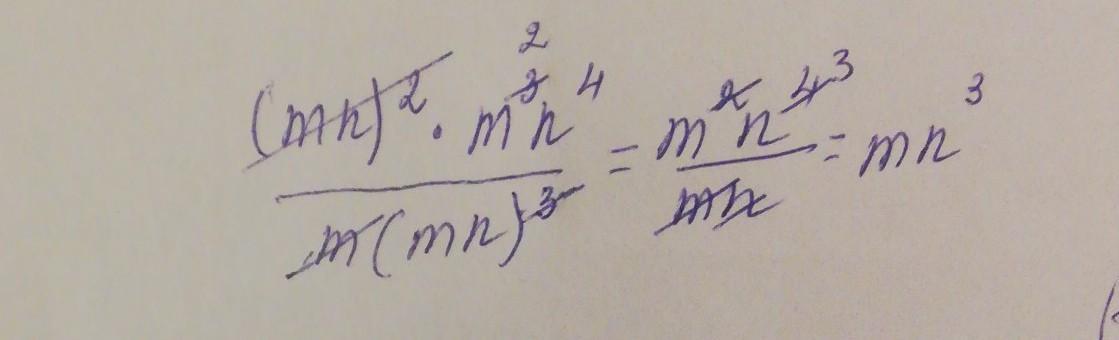 (mn)² · m³ ² n⁴ / m(mn)³ = m²n⁴ ³ / mn = mn³